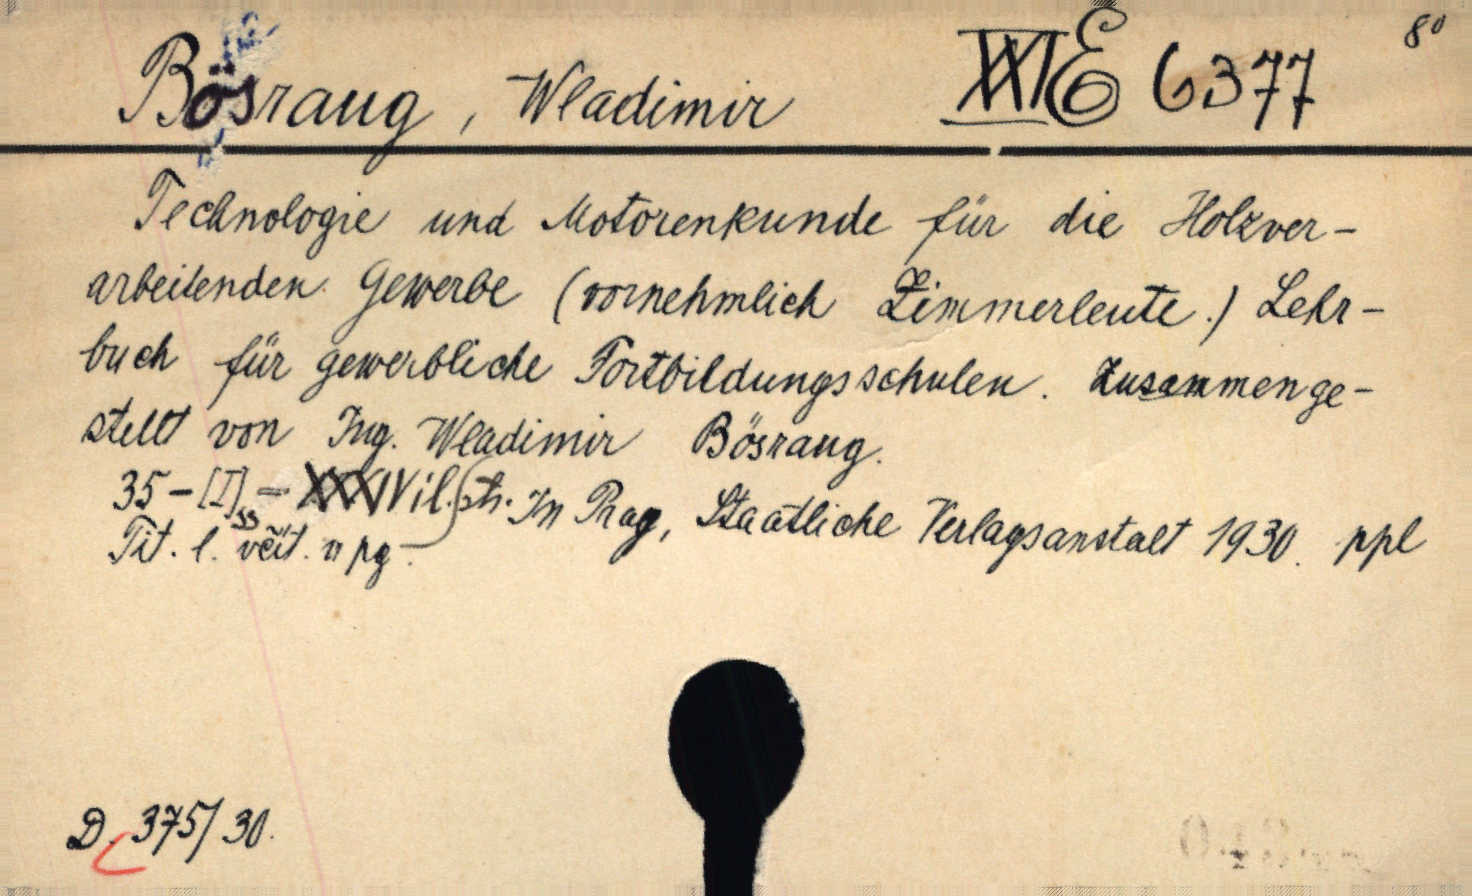 8°
Bösraug, Wladimir XXI E 6377
Technologie und Motorenkunde für die Holzver-
arbeitenden Gewerbe (vornehmlich Zimmerleute.) Lehr-
buch für gewerbliche Fortbildungsschulen. Zusammenge-
stellt von Ing. Wladimir Bösraug.
35-[I]- XXXIV il. str. In Prag, Staatliche Verlagsanstalt 1930. ppl
Tit. l. včít. v pg-
D. 375/30.